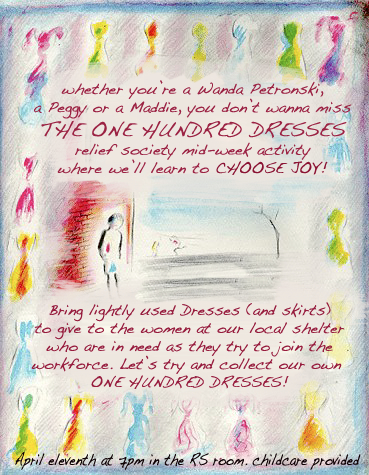 whether you're a Wanda Petronski,
a Peggy or a Maddie, you don't wanna miss
THE ONE HUNDRED DRESSES
relief society mid-week activity
where we'll learn to CHOOSE JOY!
Bring lightly used Dresses (and skirts)
to give to the women at our local shelter
who are in need as they try to join the
workforce. Let's try and collect our own
ONE HUNDRED DRESSES!
April eleventh at 7pm in the RS room. childcare provided